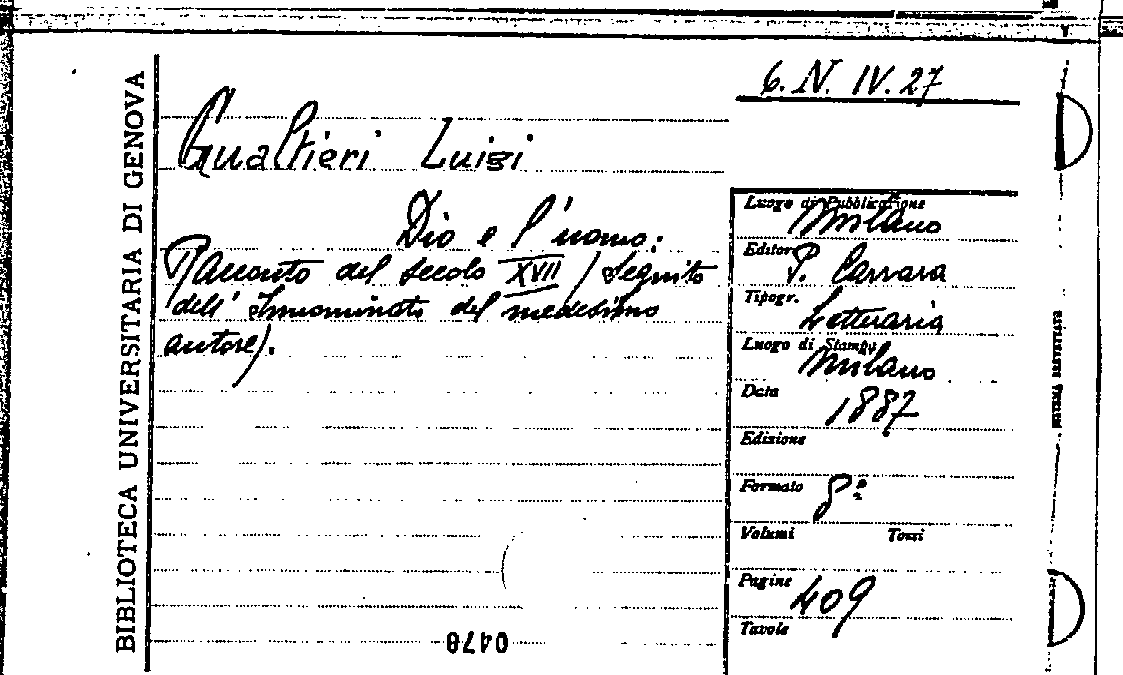 6. N. IV. 27
BIBLIOTECA UNIVERSITARIA DI GENOVA
Gualtieri Luigi
Dio e l'uomo:
Racconto del secolo XVII (Seguito
dell'Innominato del medesimo
autore).
Luogo di Pubblicazione Milano
Editore P. Carrara
Tipogr. Letteraria
Luogo di Stampa Milano
Data 1887
Edizione
Formato 8º
Volumi Tomi
Pagine 409
Tavole
0478